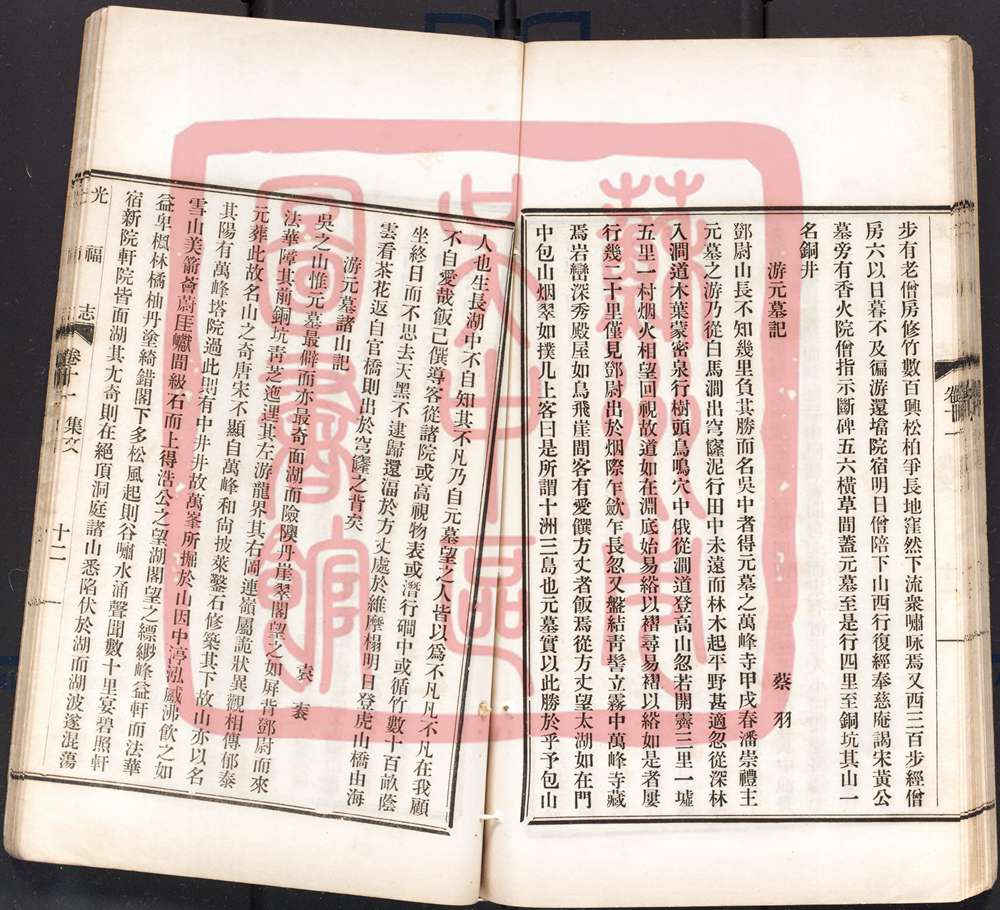 步有老僧房修竹數百與松柏爭長地窪然下流衆嘯咏焉又西三百步經僧
房六以日暮不及徧游還墖院宿明日僧陪下山西行復經奉慈庵謁宋黃公
墓旁有香火院僧指示斷碑五六橫草間蓋元墓至是行四里至銅坑其山一
名銅井
游元墓記
蔡羽
鄧尉山長不知幾里負其勝而名吳中者得元墓之萬峰寺甲戌春潘崇禮主
元墓之游乃從白馬澗出穹窿泥行田中未遠而林木起平野甚適忽從深林
入澗道木葉蒙密泉行樹頭鳥鳴穴中俄從澗道登高山忽若開霽三里一墟
五里一村烟火相望回視故道如在淵底始易綌以褶尋易褶以綌如是者屢
行幾二十里僅見鄧尉出於烟際乍歛乍長忽又盤結靑髻立霧中萬峰寺藏
焉岩巒深秀殿屋如鳥飛崖間客有愛饌方丈者飯焉從方丈望太湖如在門
中包山烟翠如撲几上客曰是所謂十洲三島也元墓實以此勝於乎予包山
人也生長湖中不自知其不凡乃自元墓望之人皆以爲不凡凡不凡在我顧
不自愛哉飯已僎導客從諸院或高視物表或潛行磵中或循竹數十百畝蔭
坐終日而不思去天黑不逮歸還湢於方丈處於維摩榻明日登虎山橋由海
雲看茶花返自官橋則出於穹窿之背矣
游元墓諸山記
袁袠
吳之山惟元墓最僻而亦最奇面湖而險隩丹崖翠閣望之如屏背鄧尉而來
法華障其前銅坑靑芝迤邐其左游龍界其右岡連嶺屬詭狀異觀相傳郁泰
元葬此故名山之奇唐宋不顯自萬峰和尙披萊鑿石修築其下故山亦以名
其陽有萬峰塔院過此則有中井井故萬峯所掘於山因中渟泓感沸飮之如
雪山美箭薈蔚厓巘間級石而上得浩公之望湖閣望之縹緲峰益軒而法華
益卑楓林橘柚丹塗綺錯閣下多松風起則谷嘯水涌聲聞數十里宴碧照軒
宿新院軒院皆面湖其尤奇則在絕頂洞庭諸山悉陷伏於湖而湖波遂混蕩
光福志
卷十一 集文
十二
蘇州市吳中區圖書館